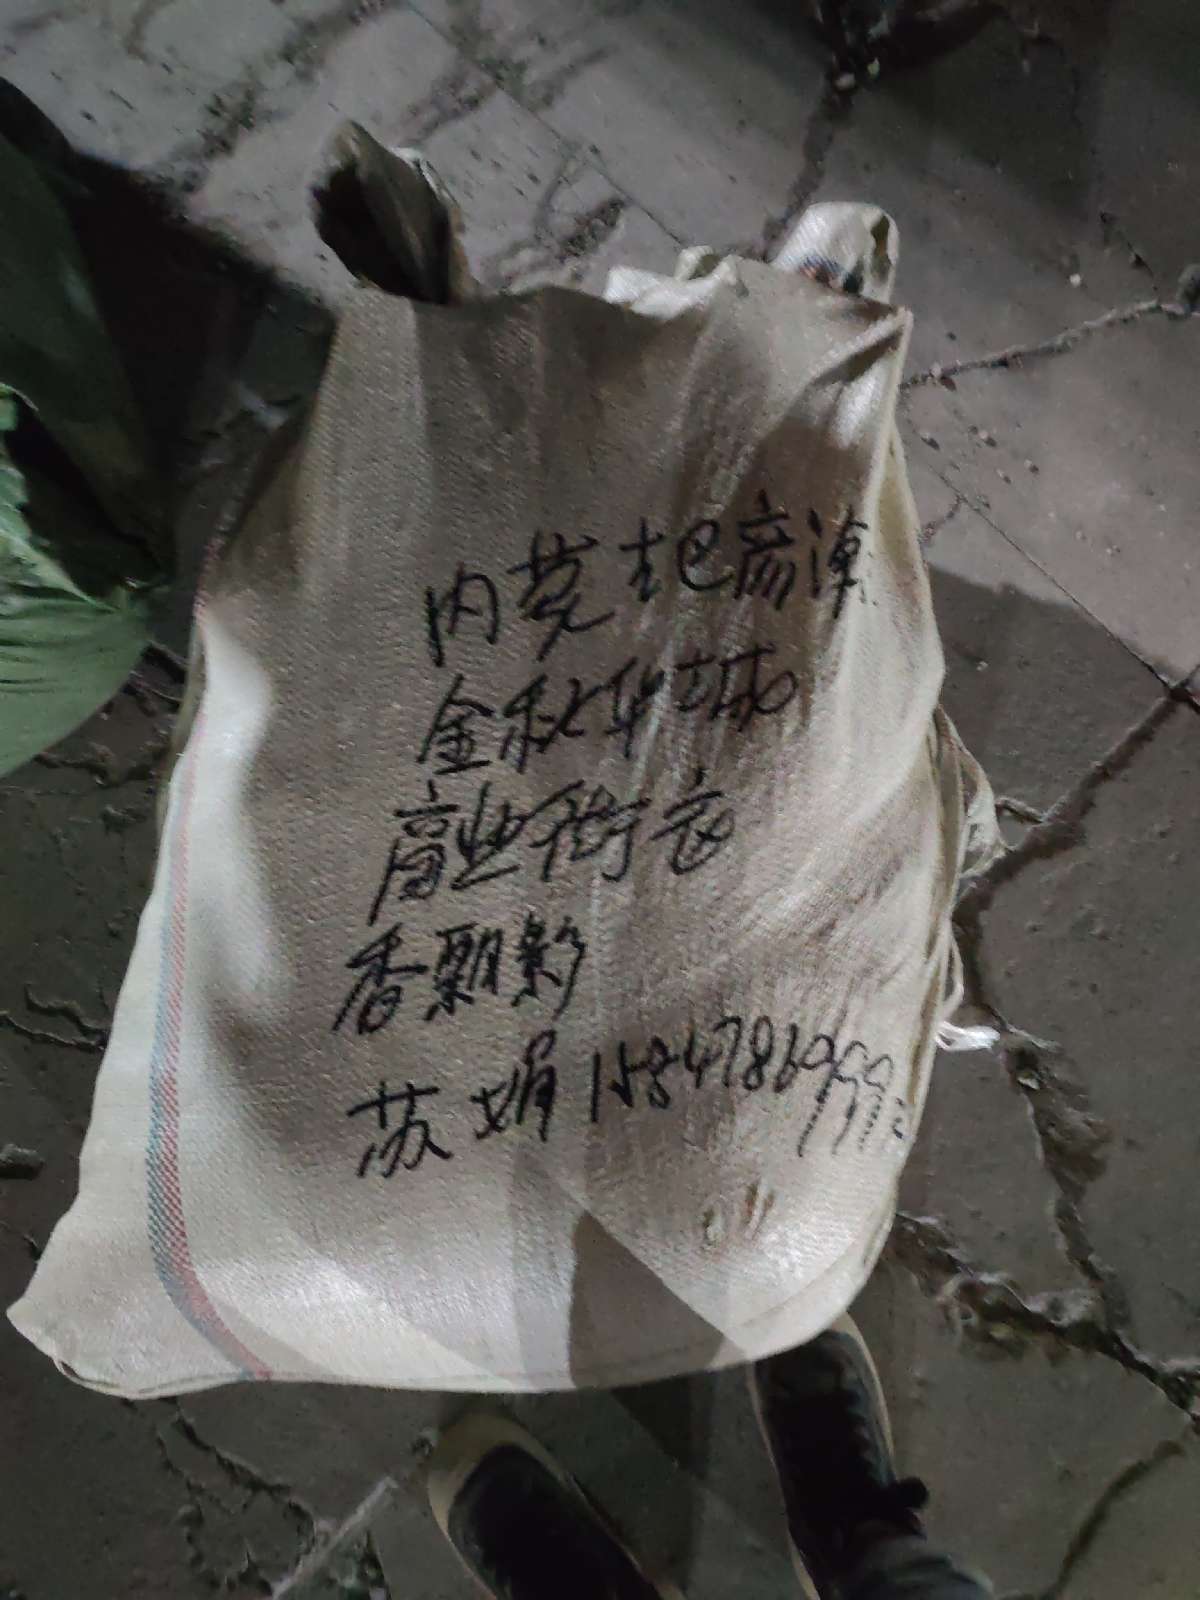 内蒙 巴彦淖
金秋华城
商业街衣
香鬓影
苏娟 1584786